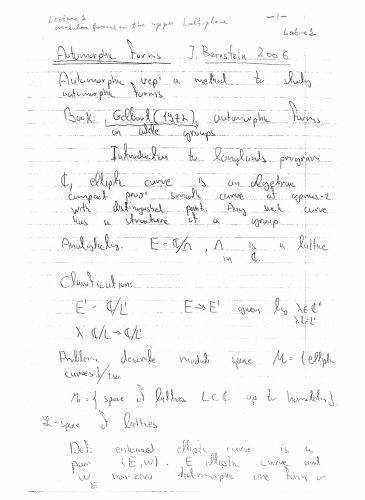 Lecture 1
modular forms on the upper half-plane
-1-
Lecture 1
Automorphic Forms J. Bernstein 2006
Automorphic repⁿ a method to study
automorphic forms
Book: Gelbart (197 ), automorphic forms,
on adele groups
Introduction to Langlands program
ℂ, elliptic curve is an algebraic
compact proj smooth curve of genus
with distinguished point. Any such curve
has a structure of a group
Analytically: E = ℂ/Λ, Λ is a lattice
in ℂ.
Classification:
E' = ℂ/L' E → E' given by λ ∈ ℂ*
λL = L'
λ: ℂ/L → ℂ/L'
Problem: describe moduli space M = {elliptic
curves}/iso.
M = { space of lattices L ⊂ ℂ up to homothety }.
L - space of lattices
Def: enhanced elliptic curve is a
pair (E, w). E elliptic curve and
w non-zero holomorphic one form on
E